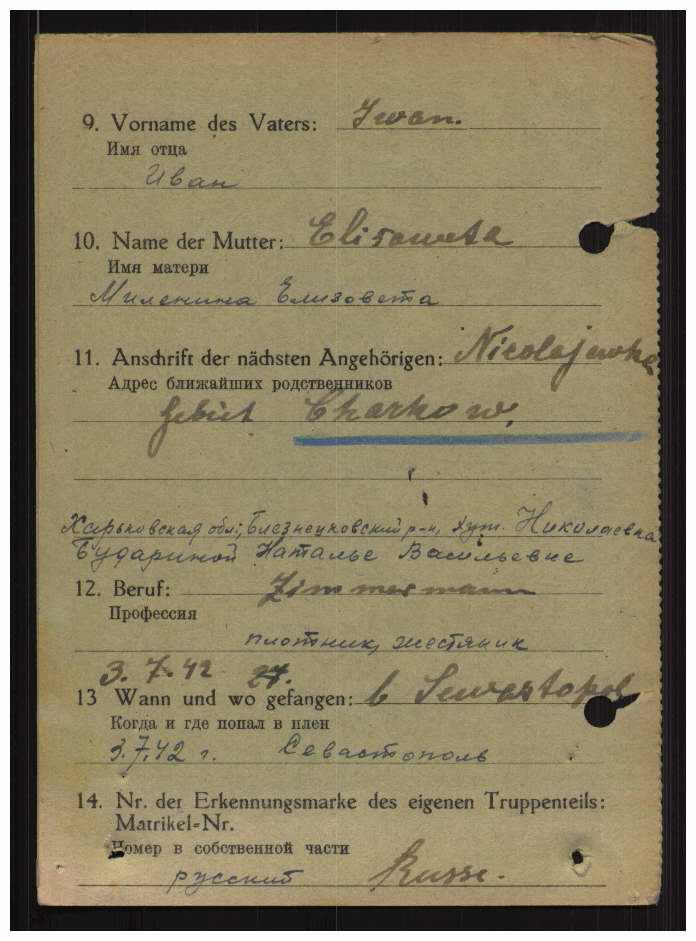 9. Vorname des Vaters: Iwan.
Имя отца
Иван
10. Name der Mutter: Elisaweta
Имя матери
Миленина Елизовета
11. Anschrift der nächsten Angehörigen: Nicolajewka
Адрес ближайших родственников
Gebiet Charkow.
Харьковская обл., Близнецковский р-н, хут. Николаевка
Будариной Наталье Васильевне
12. Beruf: Zimmermann
Профессия
плотник, жестяник
3. 7. 42
13 Wann und wo gefangen: b Sewastopol
Когда и где попал в плен
3.7.42 г. Севастополь
14. Nr. der Erkennungsmarke des eigenen Truppenteils:
Matrikel=Nr.
Номер в собственной части
русский Russe.